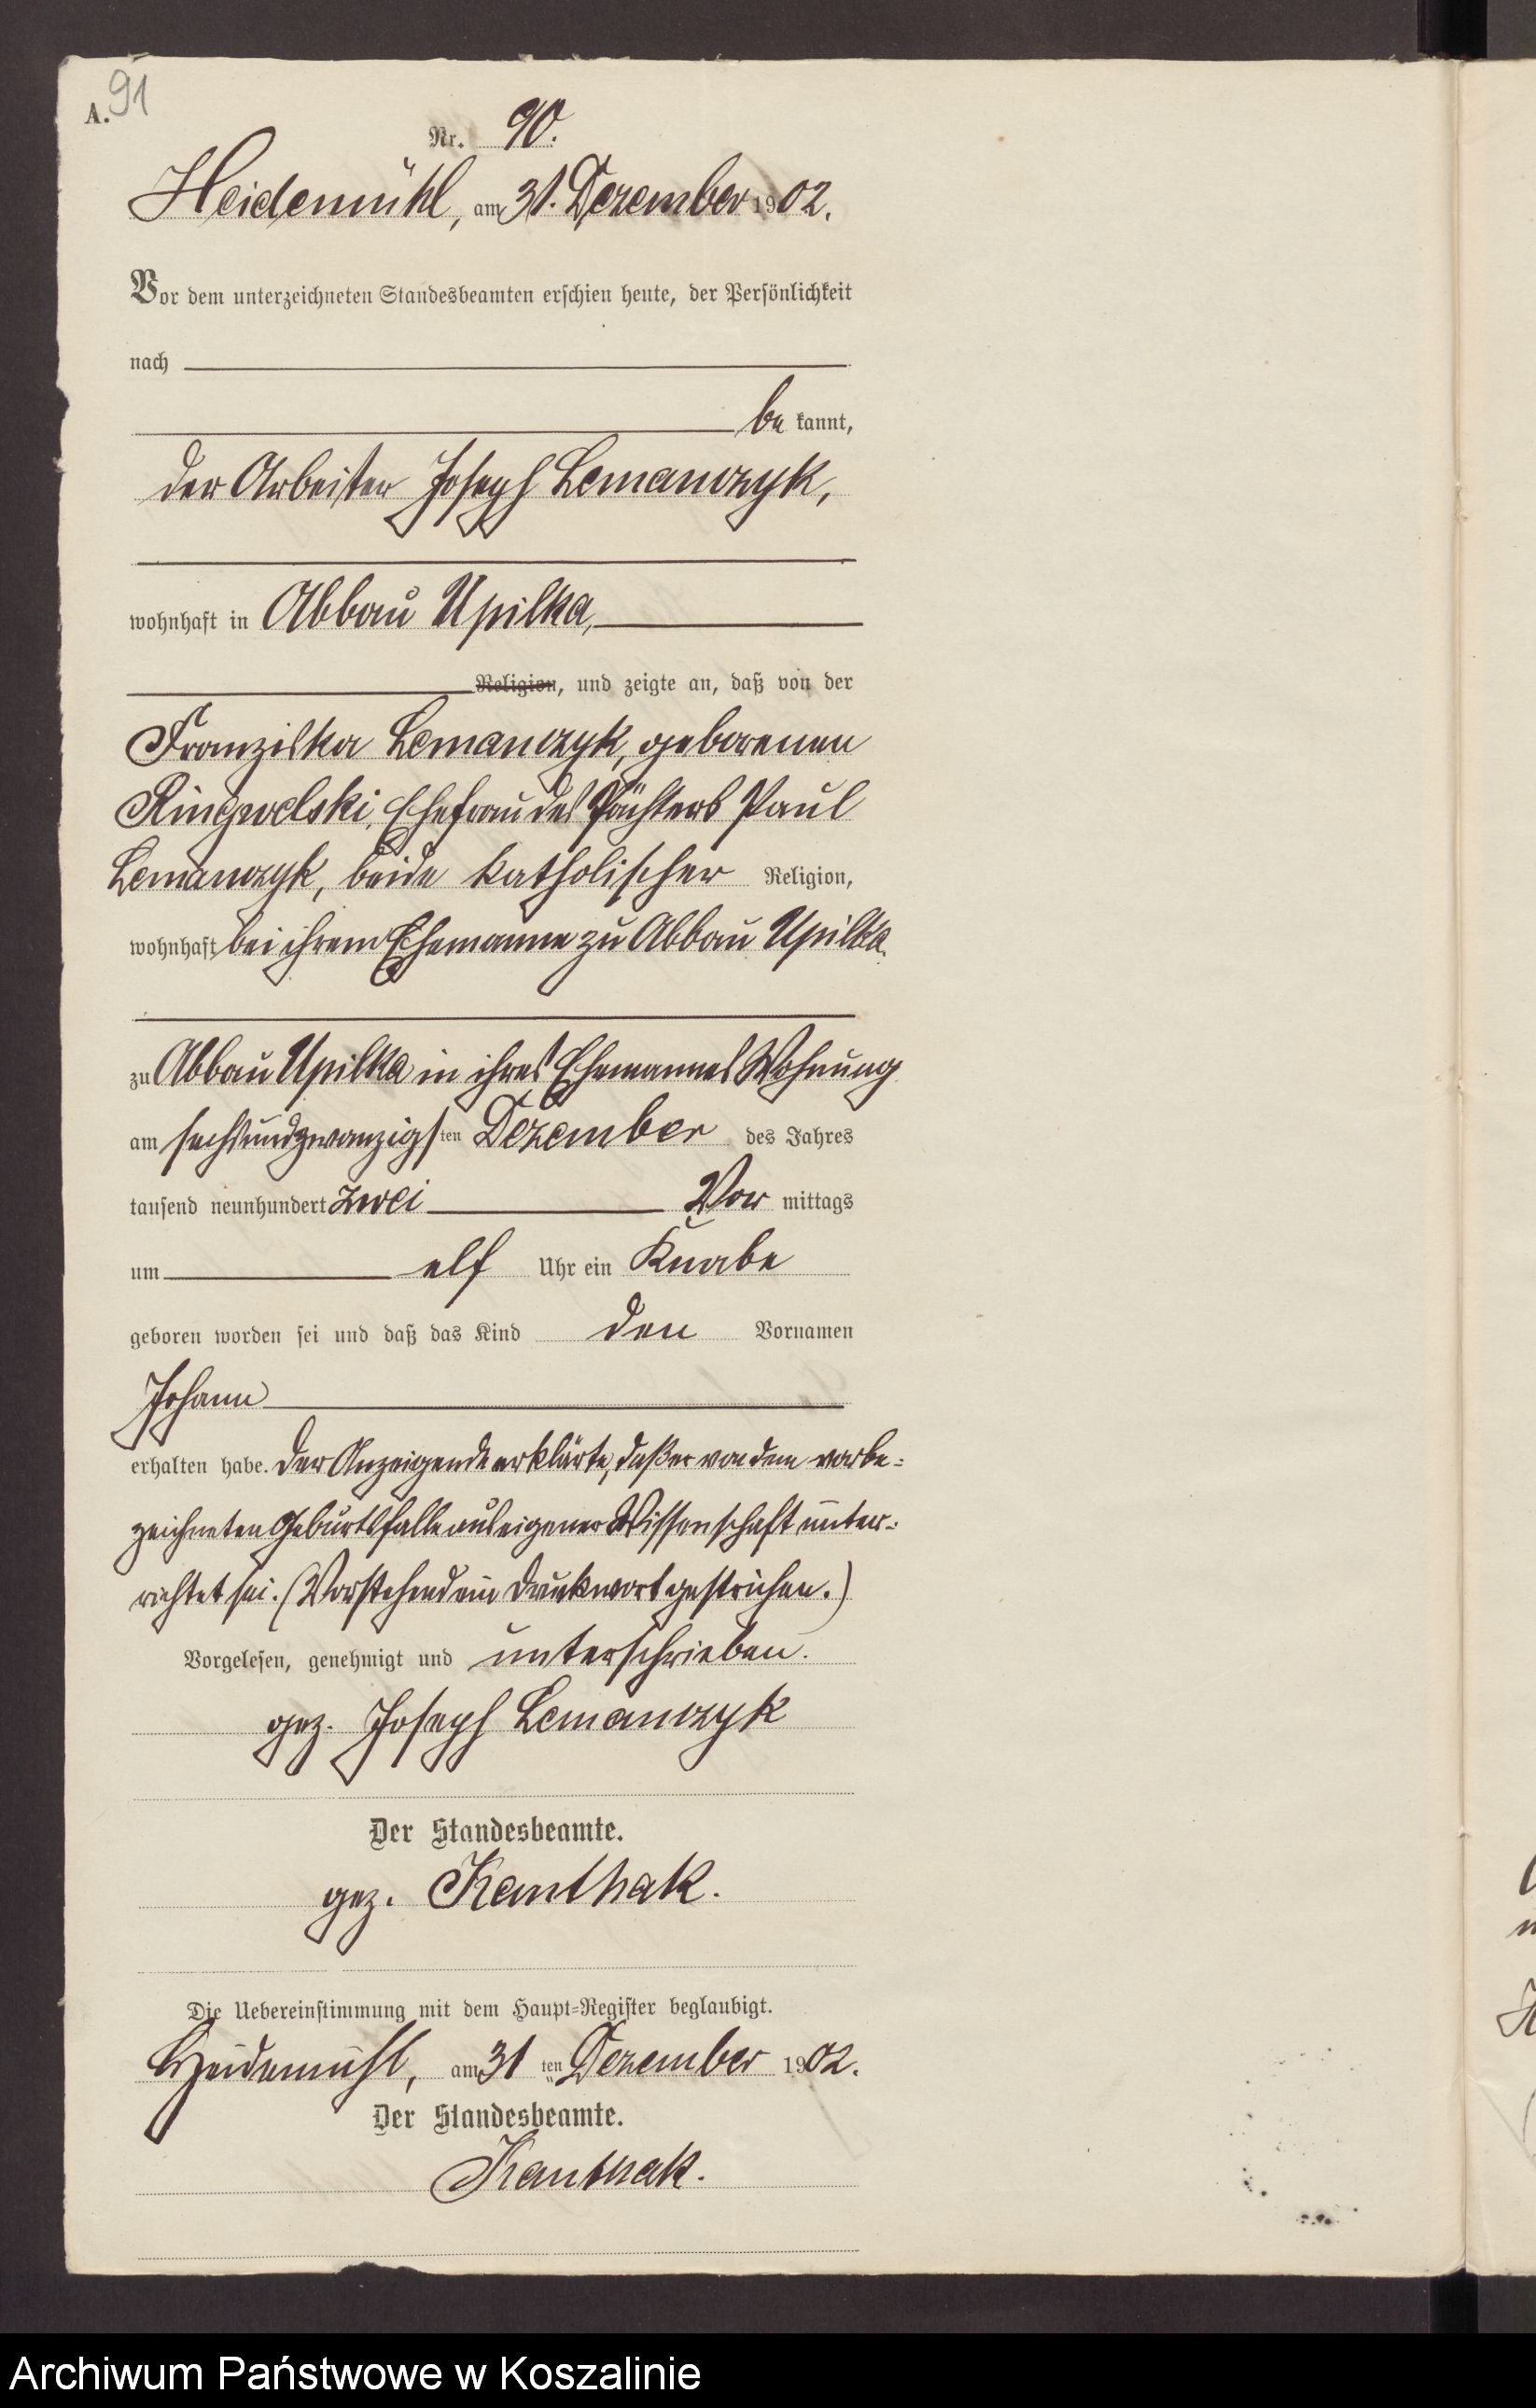 91
A.
Nr. 90.
Heidemühl, am 31. Dezember 1902.
Vor dem unterzeichneten Standesbeamten erschien heute, der Persönlichkeit
nach
be kannt,
der Arbeiter Joseph Lemanczyk,
wohnhaft in Abbau Upilka,
Religion, und zeigte an, daß von der
Franziska Lemanczyk, geborenen
Ringwelski, Ehefrau des Pächters Paul
Lemanczyk, beide katholischer Religion,
wohnhaft bei ihrem Ehemanne zu Abbau Upilka.
zu Abbau Upilka in ihres Ehemannes Wohnung
am sechsundzwanzigsten Dezember des Jahres
tausend neunhundert zwei Vor mittags
um elf Uhr ein Knabe
geboren worden sei und daß das Kind den Vornamen
Johann
erhalten habe. Der Anzeigende erklärte, daß er von dem vorbe-
zeichneten Geburtsfalle aus eigener Wissenschaft unter-
richtet sei. (Vorstehend ein Druckwort gestrichen.)
Vorgelesen, genehmigt und unterschrieben.
gez. Joseph Lemanczyk
Der Standesbeamte.
gez. Kanthak.
Die Uebereinstimmung mit dem Haupt-Register beglaubigt.
Heidemühl, am 31 ten Dezember 1902.
Der Standesbeamte.
Kanthak.
Archiwum Państwowe w Koszalinie